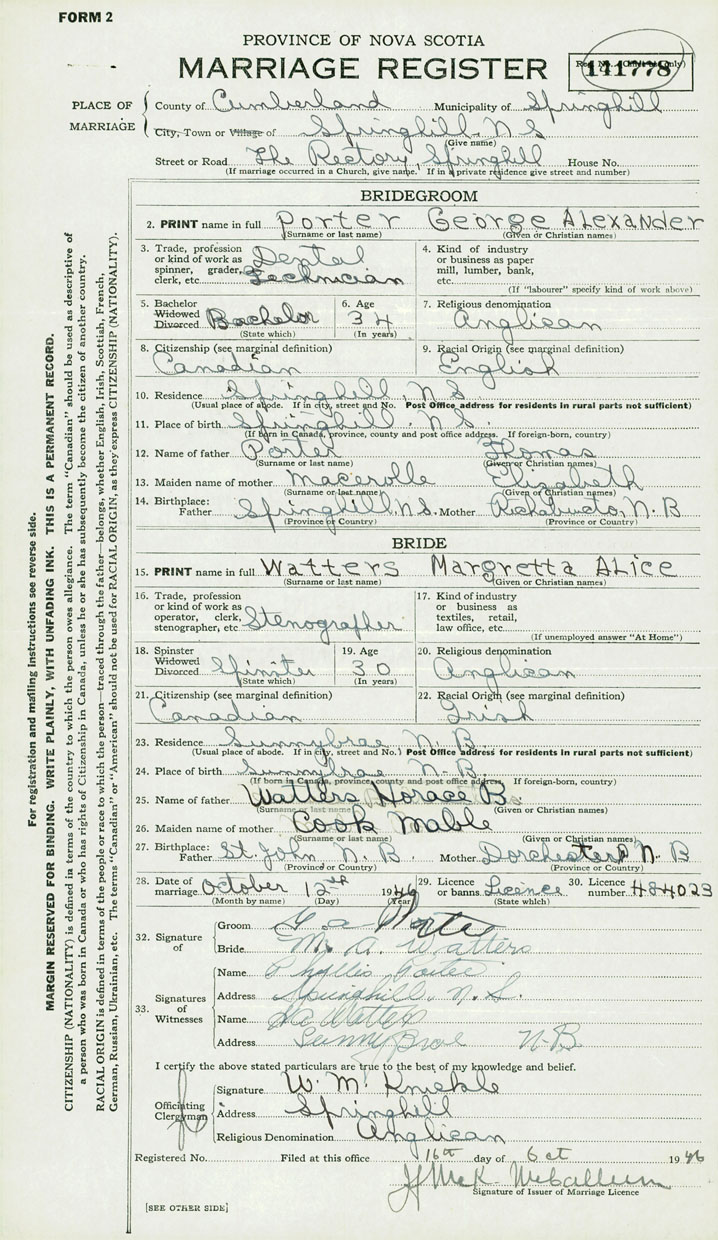 FORM 2
PROVINCE OF NOVA SCOTIA
MARRIAGE REGISTER
141778
PLACE OF MARRIAGE
County of Cumberland Municipality of Springhill
City, Town or Village of Springhill N S
(Give name)
Street or Road The Rectory, Springhill House No.
(If marriage occurred in a Church, give name. If in a private residence give street and number)
BRIDEGROOM
2. PRINT name in full Porter George Alexander
(Surname or last name) (Given or Christian names)
3. Trade, profession or kind of work as spinner, grader, clerk, etc. Dental Technician
4. Kind of industry or business as paper mill, lumber, bank, etc.
(If "labourer" specify kind of work above)
5. Bachelor Widowed Divorced Bachelor
(State which)
6. Age 34
(In years)
7. Religious denomination
Anglican
8. Citizenship (see marginal definition)
Canadian
9. Racial Origin (see marginal definition)
English
10. Residence Springhill, N S
(Usual place of abode. If in city, street and No. Post Office address for residents in rural parts not sufficient)
11. Place of birth Springhill, N. S.
(If born in Canada, province, county and post office address. If foreign-born, country)
12. Name of father Porter Thomas
(Surname or last name) (Given or Christian names)
13. Maiden name of mother Macerolle Elizabeth
(Surname or last name) (Given or Christian names)
14. Birthplace: Father Springhill, N.S. Mother Richabucto, N. B
(Province or Country) (Province or Country)
BRIDE
15. PRINT name in full Watters Margretta Alice
(Surname or last name) (Given or Christian names)
16. Trade, profession or kind of work as operator, clerk, stenographer, etc. Stenographer
17. Kind of industry or business as textiles, retail, law office, etc.
(If unemployed answer "At Home")
18. Spinster Widowed Divorced Spinster
(State which)
19. Age 30
(In years)
20. Religious denomination
Anglican
21. Citizenship (see marginal definition)
Canadian
22. Racial Origin (see marginal definition)
Irish
23. Residence Sunnybrae N. B.
(Usual place of abode. If in city, street and No.) Post Office address for residents in rural parts not sufficient)
24. Place of birth Sunnybrae N. B.
(If born in Canada, province, county and post office address. If foreign-born, country)
25. Name of father Watters Horace B.
(Surname or last name) (Given or Christian names)
26. Maiden name of mother Cook Mable
(Surname or last name) (Given or Christian names)
27. Birthplace: Father St. John N. B. Mother Dorchester N. B
(Province or Country) (Province or Country)
28. Date of marriage October 12th 1946
(Month by name) (Day) (Year)
29. Licence or banns Licence
(State which)
30. Licence number 484023
32. Signature of
Groom G. A. Porter
Bride M. A. Watters
33. Signatures of Witnesses
Name Phyllis Porter
Address Springhill, N. S.
Name Watters
Address Sunny Brae N-B
I certify the above stated particulars are true to the best of my knowledge and belief.
Officiating Clergyman
Signature W. M.
Address Springhill
Religious Denomination Anglican
Registered No. Filed at this office 16th day of Oct 1946
McCallum
Signature of Issuer of Marriage Licence
[SEE OTHER SIDE]
For registration and mailing instructions see reverse side.
MARGIN RESERVED FOR BINDING. WRITE PLAINLY, WITH UNFADING INK. THIS IS A PERMANENT RECORD.
CITIZENSHIP (NATIONALITY) is defined in terms of the country to which the person owes allegiance. The term "Canadian" should be used as descriptive of
a person who was born in Canada or who has rights of Citizenship in Canada, unless he or she has subsequently become the citizen of another country.
RACIAL ORIGIN is defined in terms of the people or race to which the person—traced through the father—belongs, whether English, Irish, Scottish, French,
German, Russian, Ukrainian, etc. The terms "Canadian" or "American" should not be used for RACIAL ORIGIN, as they express CITIZENSHIP (NATIONALITY).